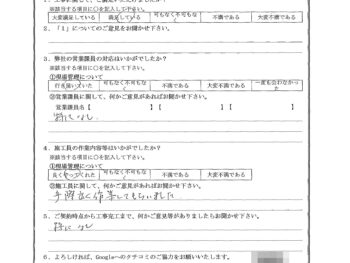 ※該当する項目に○を記入して下さい。
大変満足している 満足している 可もなく不可もなく 不満である 大変不満である
2．「1」についてのご意見をお聞かせ下さい。
3．弊社の営業職員の対応はいかがでしたか？
※該当する項目に○を記入して下さい。
①現場管理について
行き届いていた 可もなく不可もなく 不満である 大変不満である 一度も会わなかった
②営業職員に関して、何かご意見があればお聞かせ下さい。
営業職員名【 】【 】【 】
特になし
4．施工員の作業内容等はいかがでしたか？
※該当する項目に○を記入して下さい。
①現場管理について
良くやってくれた 可もなく不可もなく 不満である 大変不満である
②施工員に関して、何かご意見があればお聞かせ下さい。
手際良く作業してもらいました
5．ご契約時点から工事完工まで、何かご意見等がありましたらお聞かせ下さい。
特になし
6．よろしければ、Googleへのクチコミのご協力をお願いいたします。